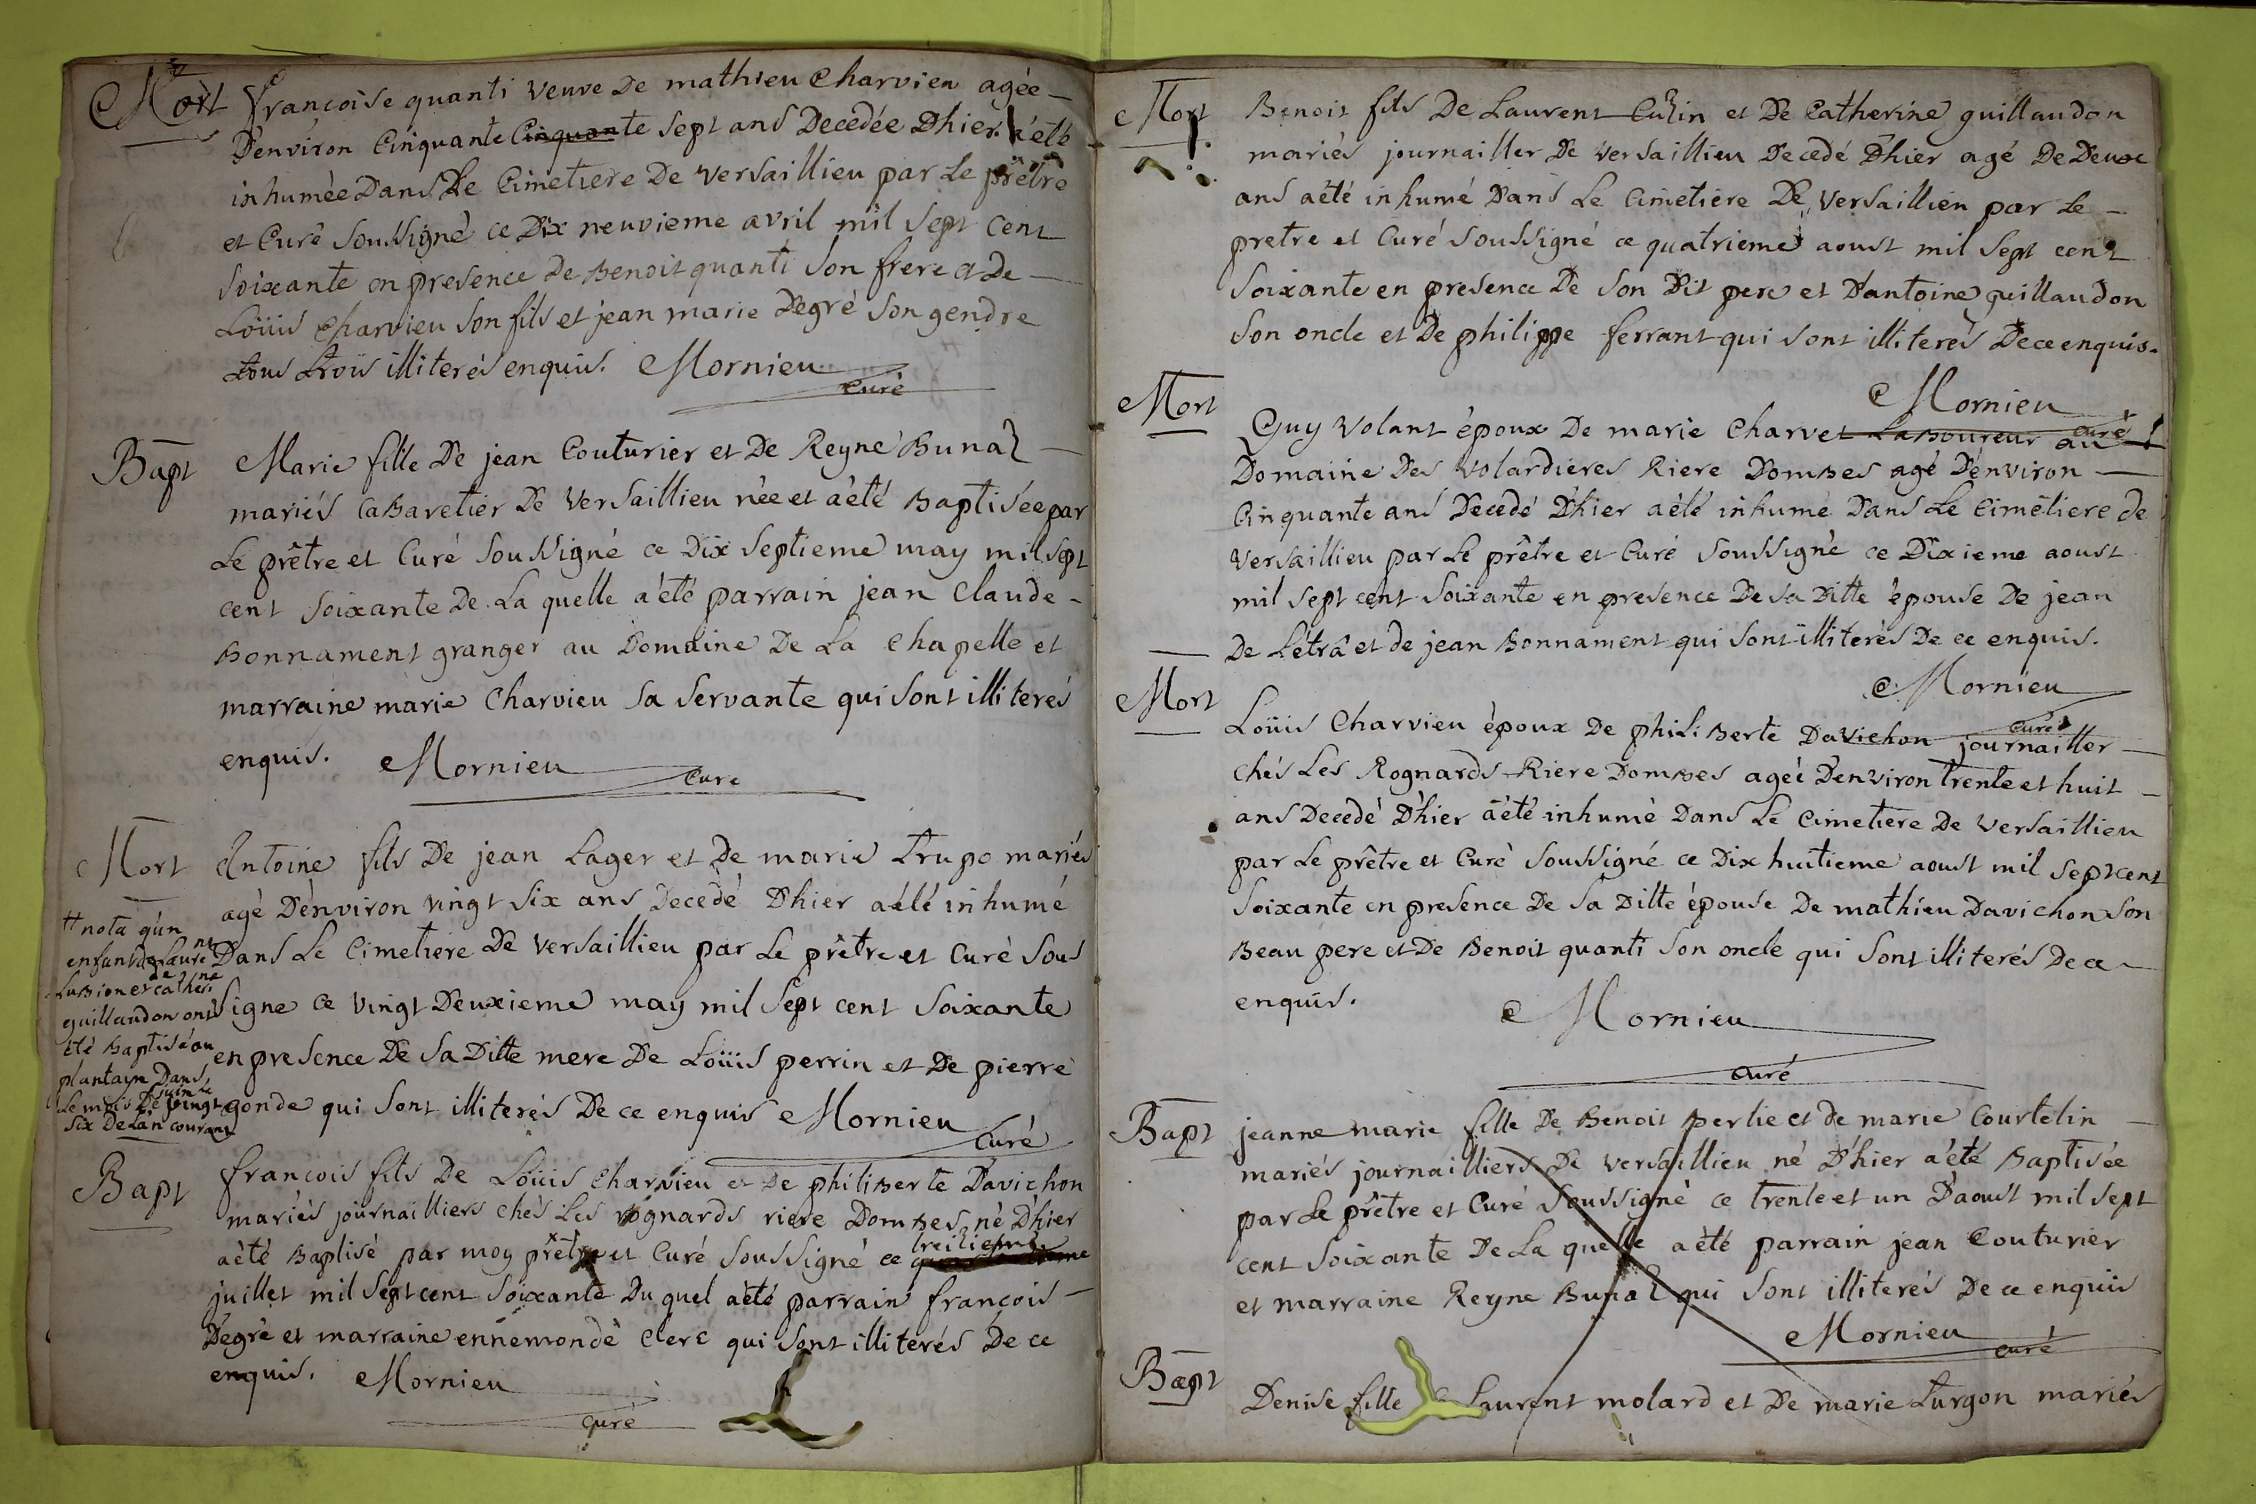 Mort
francoise quanti veuve De mathieu Charvieu agée
D'environ Cinquante Cinquante Sept ans Decedée D'hier a été
inhumée Dans Le Cimetiere De versaillieu par Le prêtre
et Curé Soussigné ce Dix neuvieme avril mil Sept Cent
Soixante en presence De Benoit quanti Son frere et De
Loüis Charvieu Son fils et jean marie Degré Son gendre
tous trois illiterés enquis. Mornieu
curé
Bapt
Marie fille De jean Couturier et De Reyne Bunaz
mariés CaBaretier De versaillieu née et a été Baptisée par
Le prêtre et Curé Soussigné ce Dix Septieme may mil Sept
cent Soixante De La quelle a été parrain jean Claude
Bonnament granger au Domaine De La Chapelle et
marraine marie Charvieu Sa Servante qui Sont illiterés
enquis. Mornieu
cure
Mort
Antoine fils De jean Lager et De marie trupo mariés
agé D'environ vingt Six ans Decedé D'hier a été inhumé
Dans Le Cimetiere De versaillieu par Le prêtre et Curé Sous
Signe ce vingt Deuxieme may mil Sept cent Soixante
en presence De Sa Ditte mere De Loüis perrin et De pierre
gonde qui Sont illiterés De ce enquis Mornieu
curé
# nota q'un
enfant de Laurent
LuBion et de catherine
guillaudon ont
été Baptisé au
plantayn Dans
Le mois De juin Le vingt
Six De L'an courant
Bapt
francois fils De Loüis Charvieu et De philiBerte Davichon
mariés journailliers chés Les rognards riere DomBes né D'hier
a été Baptisé par moy prêtre et Curé Soussigné ce treizieme
juillet mil Sept cent Soixante Du quel a été parrain francois
Degré et marraine ennemonde Clerc qui Sont illiterés De ce
enquis. Mornieu
curé
Mort
Benoit fils De Laurent et De Catherine guillaudon
mariés journailler De versaillieu Decedé D'hier agé De Deux
ans a été inhumé Dans Le Cimetiere De versaillieu par Le
pretre et Curé Soussigné ce quatrieme aoust mil Sept cent
Soixante en presence De Son Dit pere et D'antoine guillaudon
Son oncle et De philippe ferrant qui Sont illiterés De ce enquis.
Mornieu
curé
Mort
Guy Volant époux De marie Charvet LaBoureur au
Domaine Des Volardieres Riere DomBes agé D'environ
Cinquante ans Decedé D'hier a été inhumé Dans Le Cimetiere de
versaillieu par Le prêtre et Curé Soussigné ce Dixieme aoust
mil Sept cent Soixante en presence De Sa Ditte épouse De jean
De L'étra et de jean Bonnament qui Sont illiterés De ce enquis.
Mornieu
curé
Mort
Loüis Charvieu époux De phili Berte Davichon journailler
chés Les Rognards Riere DomBes ageé D'environ trente et huit
ans Decedé D'hier a été inhumé Dans Le Cimetiere De versaillieu
par Le prêtre et Curé Soussigné ce Dix huitieme aoust mil Sept cent
Soixante en presence De Sa Ditte épouse De mathieu Davichon Son
Beau pere et De Benoit quanti Son oncle qui Sont illiterés De ce
enquis.
Mornieu
curé
Bapt
jeanne marie fille De Benoit perlie et de marie Courtelin
mariés journailliers De versaillieu né D'hier a été Baptisée
par Le prêtre et Curé Soussigné ce trente et un D'aoust mil Sept
cent Soixante De La quelle a été parrain jean Couturier
et marraine Reyne Bunaz qui Sont illiterés De ce enquis
Mornieu
curé
Bapt
Denise fille Laurent molard et De marie turgon mariés